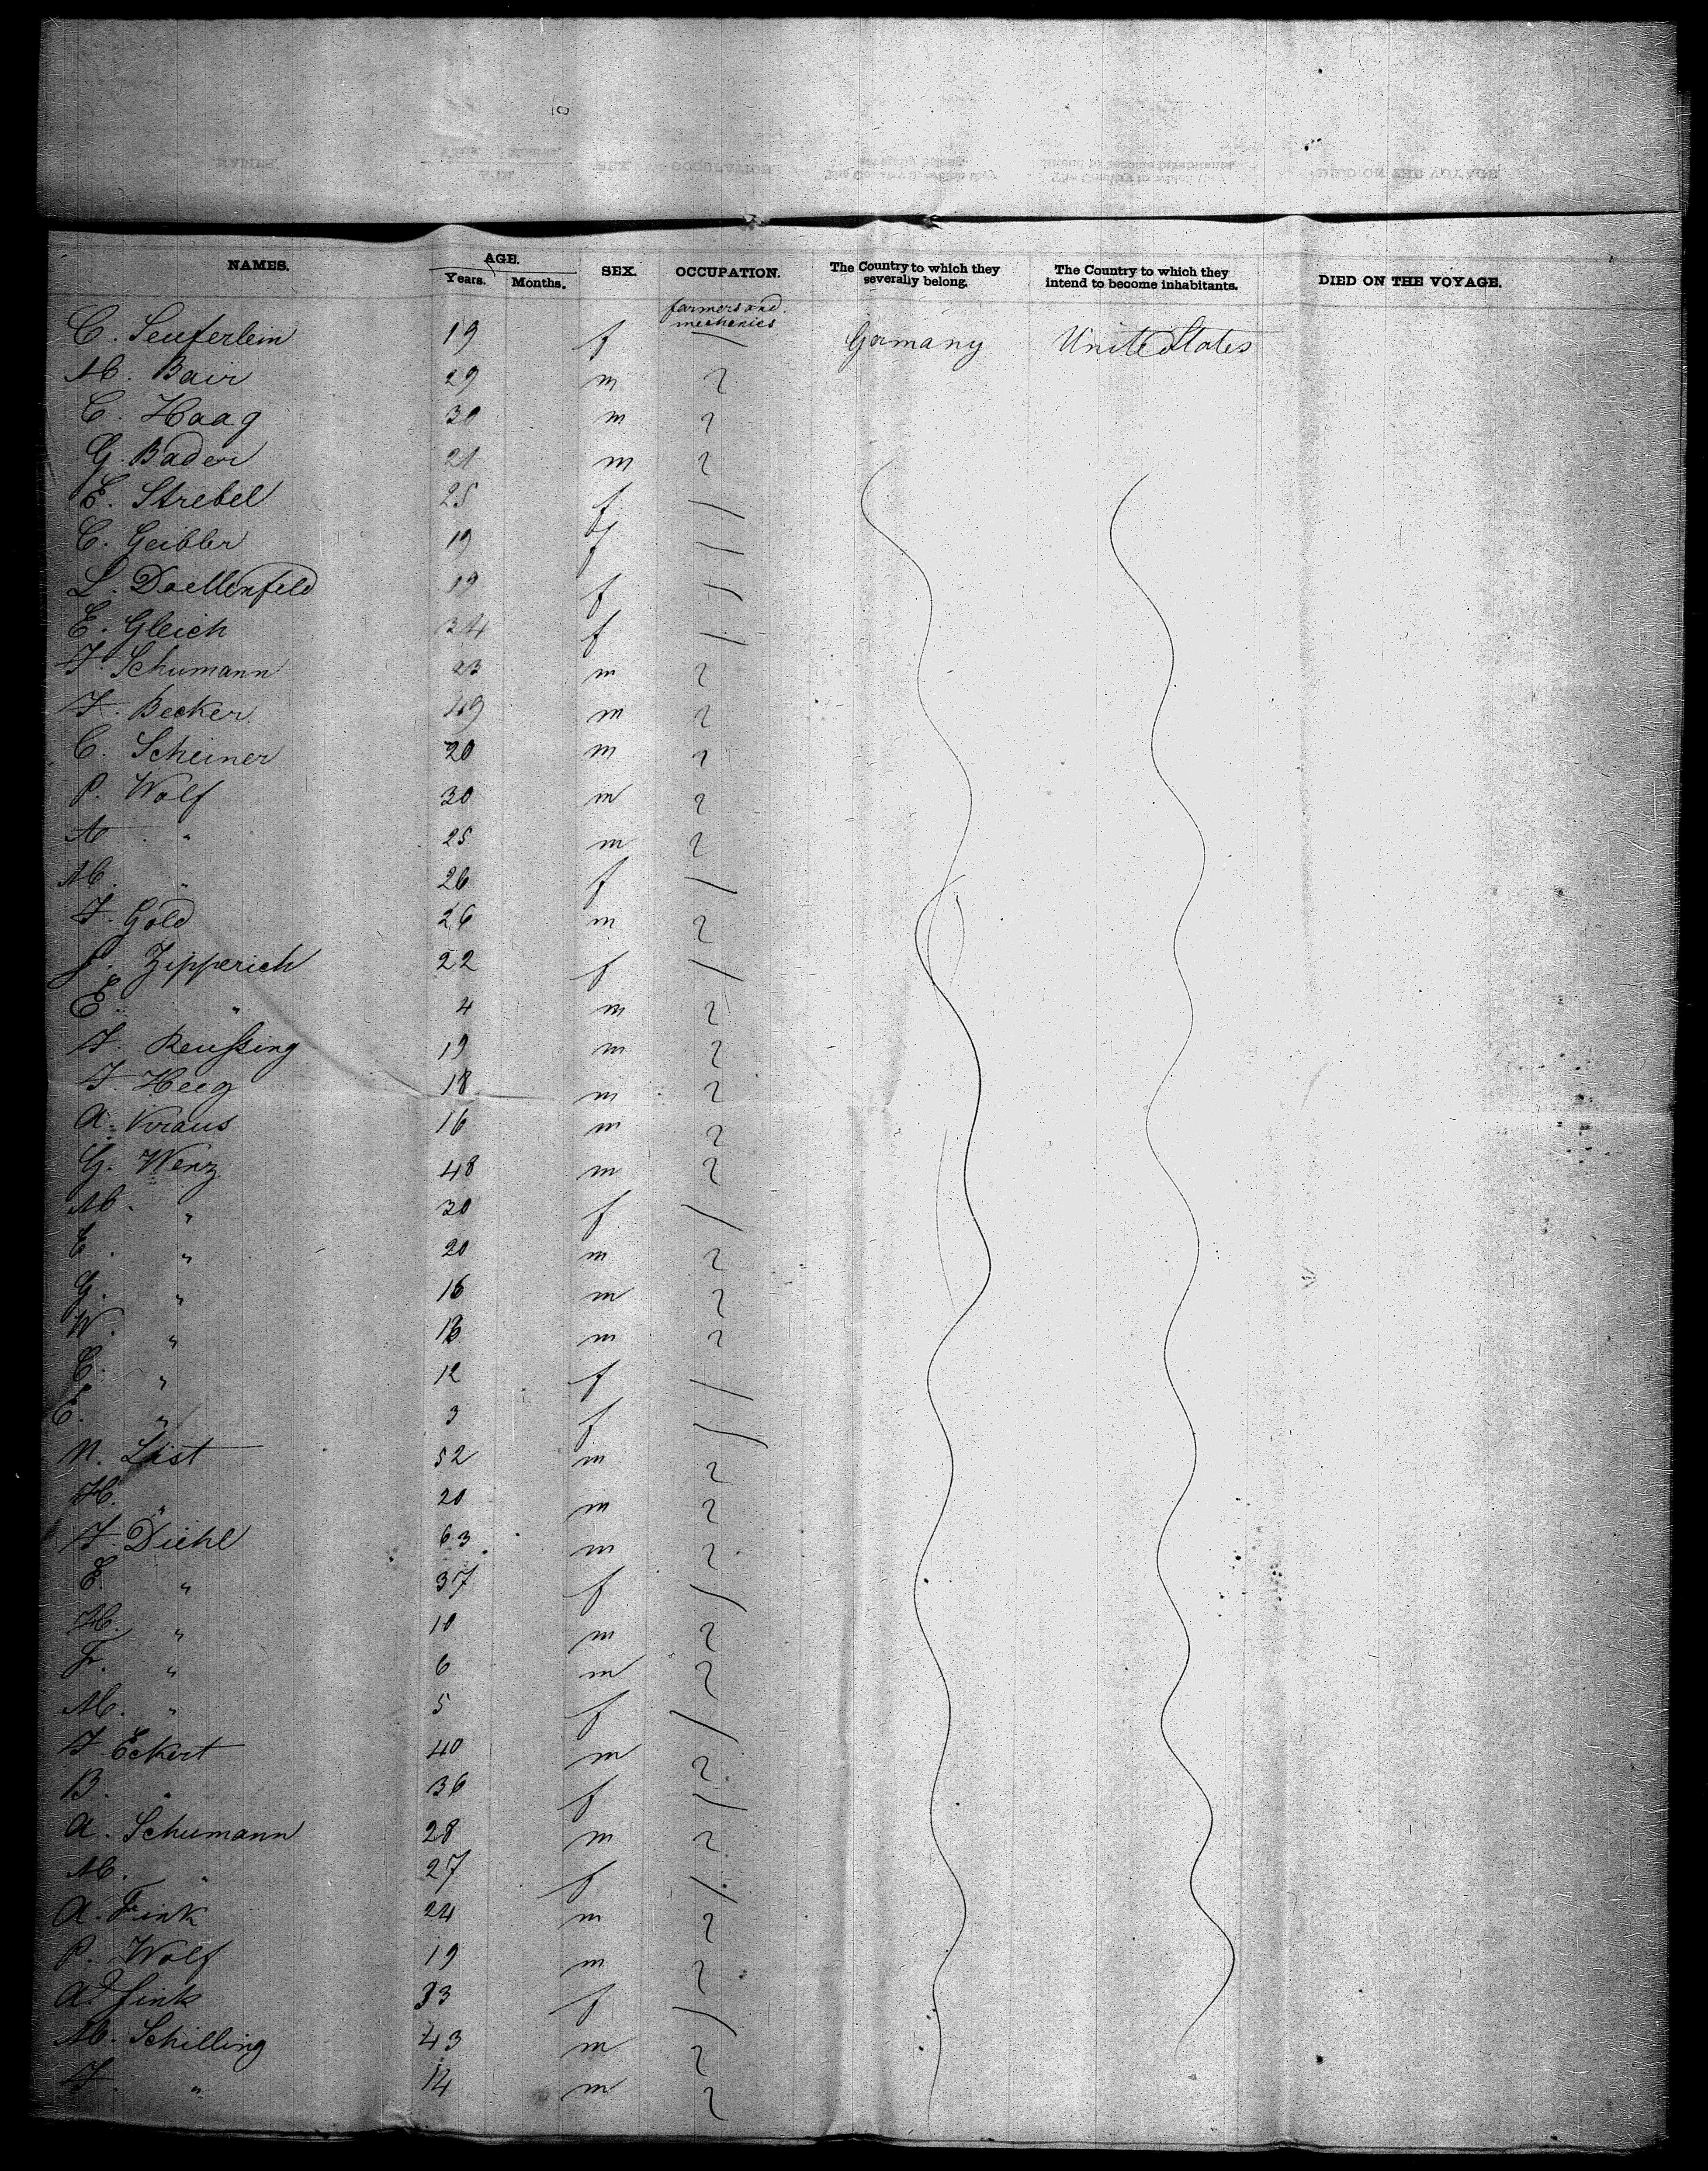 NAMES. AGE. SEX. OCCUPATION. The Country to which they severally belong. The Country to which they intend to become inhabitants. DIED ON THE VOYAGE.
Years. Months.
farmers and mechanics
C. Seuferlein 19 f / Germany United States
M. Bair 29 m
C. Haag 30 m
G. Bader 21 m
E. Strebel 25 f /
C. Geibler 19 f /
L. Doellenfeld 19 f /
E. Gleich 34 f /
F. Schumann 23 m
F. Becker 49 m
C. Scheiner 20 m
P. Wolf 30 m
A. " 25 m
M. " 26 f /
F. Gold 26 m
J. Zipperich 22 f /
E. " 4 m
F. Reußing 19 m
F. Heeg 18 m
A. Kraus 16 m
G. Wenz 48 m
M. " 30 f /
E. " 20 m
G. " 16 m
W. " 13 m
C. " 12 f /
E. " 3 f /
N. List 52 m
H. " 20 m
F. Diehl 63 m
E. " 37 f /
H. " 10 m
F. " 6 m
M. " 5 f /
F. Eckert 40 m
B. " 36 f /
A. Schumann 28 m
M. " 27 f /
A. Fink 24 m
P. Wolf 19 m
A. Fink 33 f /
M. Schilling 43 m
F. " 14 m